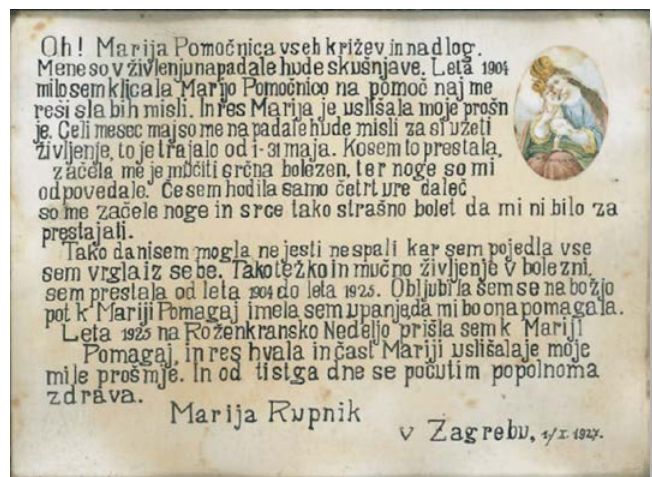 Oh! Marija Pomočnica vseh križev in nadlog.
Mene so v življenju napadale hude skušnjave. Leta 1904
milo sem klicala Marijo Pomočnico na pomoč naj me
reši slabih misli. In res Marija je uslišala moje prošn
je. Celi mesec maj so me napadale hude misli za si uzeti
življenje, to je trajalo od 1-31 maja. Ko sem to prestala,
začela me je mučiti srčna bolezen, ter noge so mi
odpovedale. Če sem hodila samo četrt ure daleč
so me začele noge in srce tako strašno bolet da mi ni bilo za
prestajati.
Tako da nisem mogla ne jesti ne spali kar sem pojedla vse
sem vrgla iz sebe. Tako težko in mučno življenje v bolezni,
sem prestala od leta 1904 do leta 1925. Obljubila sem se na božjo
pot k Mariji Pomagaj imela sem upanje da mi bo ona pomagala.
Leta 1925 na Roženkransko Nedeljo prišla sem k Mariji
Pomagaj, in res hvala in čast Mariji uslišala je moje
mile prošmje. In od tistga dne se počutim popolnoma
zdrava.
Marija Rupnik
v Zagrebu, 1/I. 1927.